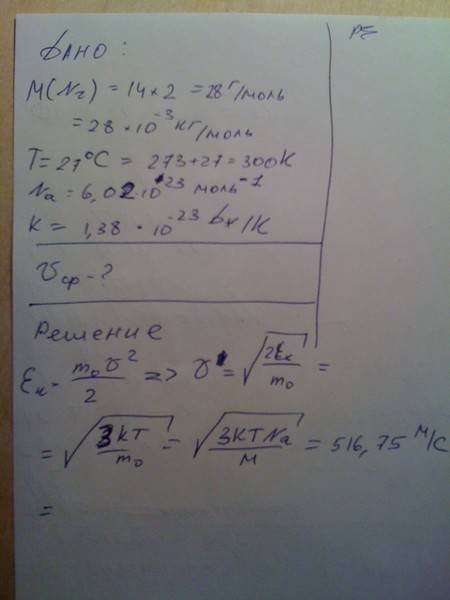 Дано:
РЕ
M(N₂) = 14 × 2 = 28 г/моль
= 28 × 10⁻³ кг/моль
T = 27°C = 273 + 27 = 300K
Na = 6,02 · 10²³ моль⁻¹
K = 1,38 · 10⁻²³ Дж/K
υср - ?
Решение
Ɛк = m₀υ²/2 => υ = √(2Ɛк/m₀) =
= √(3KT/m₀) = √(3KTNa/M) = 516,75 м/с
=